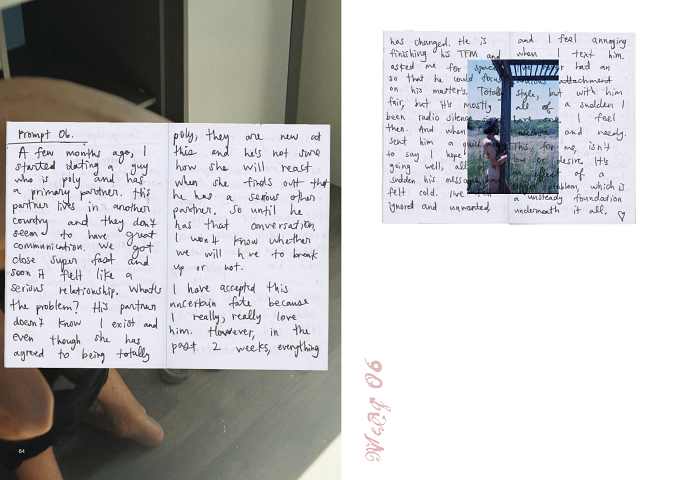 Prompt 06.
A few months ago, I
started dating a guy
who is poly and has
a primary partner. This
partner lives in another
country and they don't
seem to have great
communication. We got
close super fast and
soon it felt like a
serious relationship. What's
the problem? His partner
doesn't know I exist and
even though she has
agreed to being totally
poly, they are new at
this and he's not sure
how she will react
when she finds out that
he has a serious other
partner. So until he
has that conversation,
I won't know whether
we will have to break
up or not.
I have accepted this
uncertain fate because
I really, really love
him. However, in the
past 2 weeks, everything
64
has changed. He is
finishing his TFM and
asked me for space
so that he could focus
on his masters. Totally
fair, but it's mostly
been radio silence
then. And when
sent him a quick
to say I hope
going well, all
sudden his messages
felt cold. I've
ignored and unwanted
and I feel annoying
when I text him.
had an
attachment
style, but with him
all of a sudden I
I feel
and needy.
This, for me, isn't
or desire. It's
effect of a
problem, which is
a unsteady foundation
underneath it all.
Meag 06